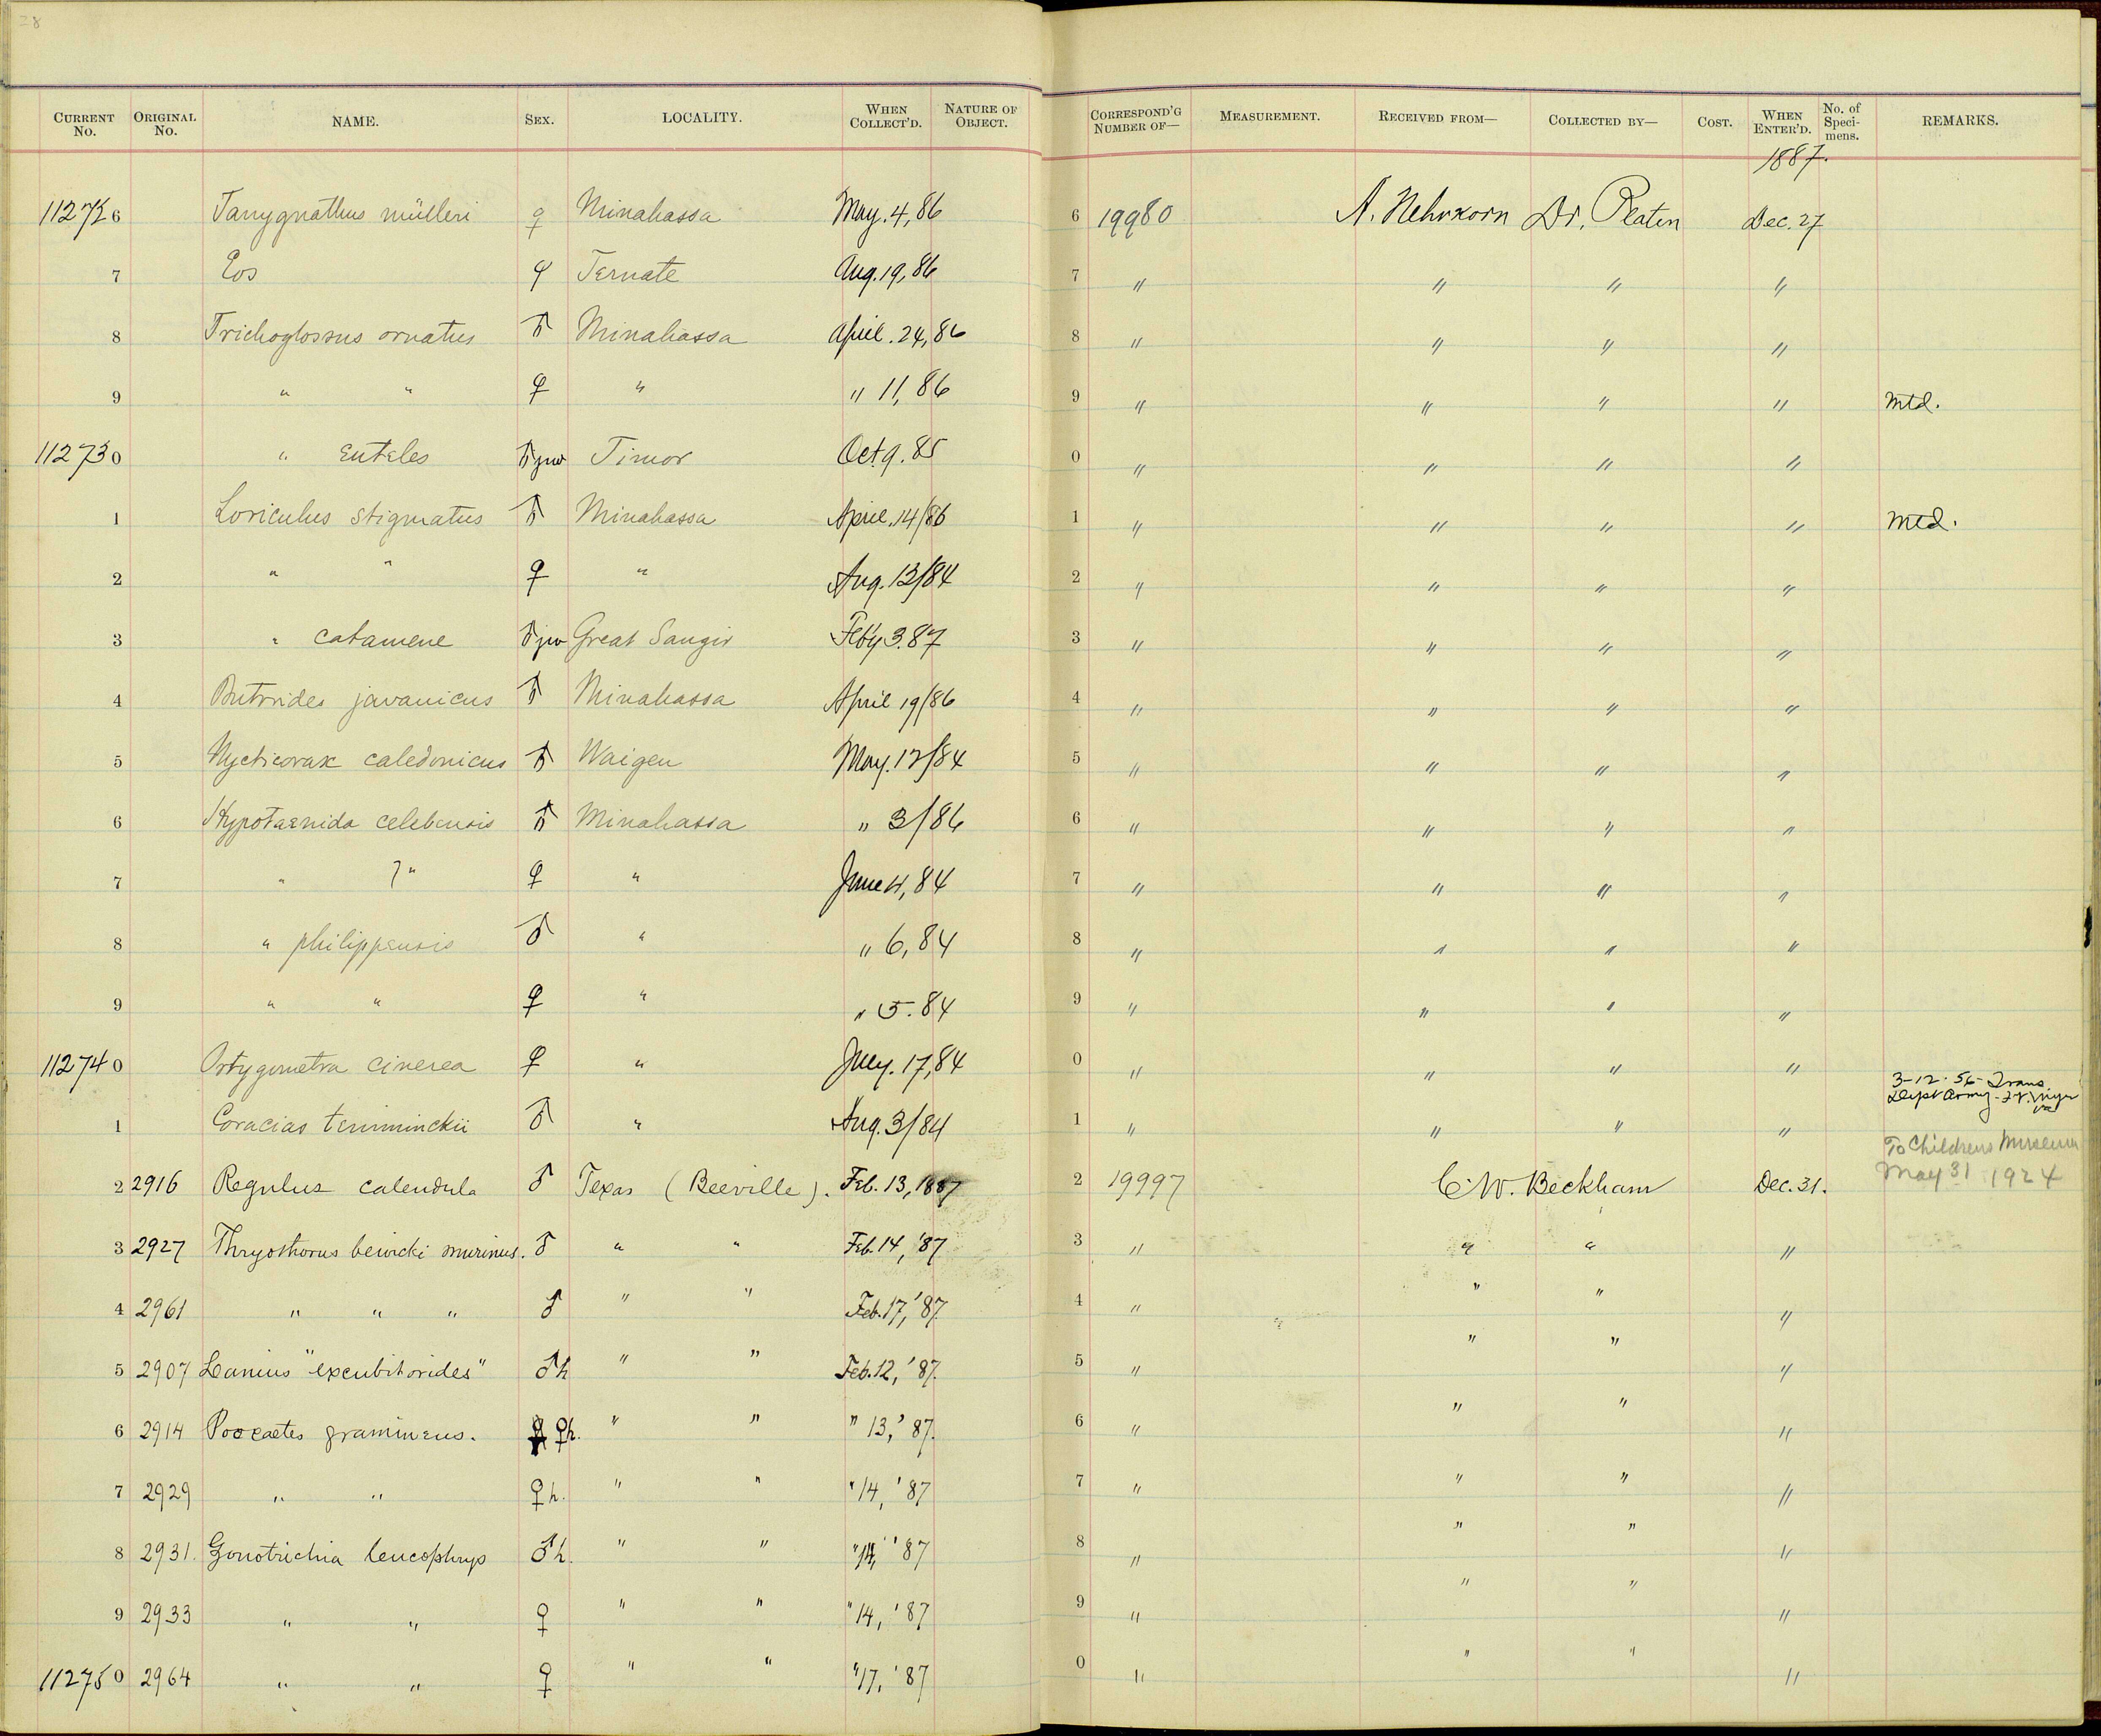 28
CURRENT No. ORIGINAL No. NAME. SEX. LOCALITY. WHEN COLLECT'D. NATURE OF OBJECT. CORRESPOND'G NUMBER OF— MEASUREMENT. RECEIVED FROM— COLLECTED BY— COST. WHEN ENTER'D. No. of Speci-mens. REMARKS.
1887.
112726 Tanygnathus mülleri ♀ Minahassa May. 4, 86 6 19980 A. Nehrkorn Dr. Platen Dec. 27
7 Eos ♀ Ternate Aug. 19, 86 7 " " " "
8 Trichoglossus ornatus ♂ Minahassa April. 24, 86 8 " " " "
9 " " ♀ " " 11, 86 9 " " " " Mtd.
112730 " euteles ♂ juv Timor Oct 9. 85 0 " " " "
1 Loriculus stigmatus ♂ Minahassa April. 14/86 1 " " " " Mtd.
2 " " ♀ " Aug. 13/84 2 " " " "
3 " catamene ♂ juv Great Sangir Feby 3. 87 3 " " " "
4 Butorides javanicus ♂ Minahassa April 19/86 4 " " " "
5 Nycticorax caledonicus ♂ Waigeu May. 12/84 5 " " " "
6 Hypotaenida celebensis ♂ Minahassa " 3/86 6 " " " "
7 " ? " ♀ " June 4, 84 7 " " " "
8 " philippensis ♂ " " 6, 84 8 " " " "
9 " " ♀ " " 5. 84 9 " " " "
112740 Ortygometra cinerea ♀ " July. 17, 84 0 " " " "
3-12-56- Trans
Dept Army - Ft.
1 Coracias temminckii ♂ " Aug. 3/84 1 " " " "
To Childrens Museum
May 31 1924
2 2916 Regulus calendula ♂ Texas (Beeville). Feb. 13, 1887 2 19997 C. W. Beckham Dec. 31.
3 2927 Thryothorus bewicki murinus. ♂ " " Feb. 14, '87 3 " " " "
4 2961 " " " ♂ " " Feb. 17, '87 4 " " " "
5 2907 Lanius "excubitorides" ♂ h " " Feb. 12, '87. 5 " " " "
6 2914 Poocaetes gramineus. ♀ h. " " " 13, '87. 6 " " " "
7 2929 " " ♀ h. " " " 14, '87 7 " " " "
8 2931. Zonotrichia leucophrys ♂ h. " " " 14, '87 8 " " " "
9 2933 " " ♀ " " " 14, '87 9 " " " "
112750 2964 " " ♀ " " " 17, '87 0 " " " "